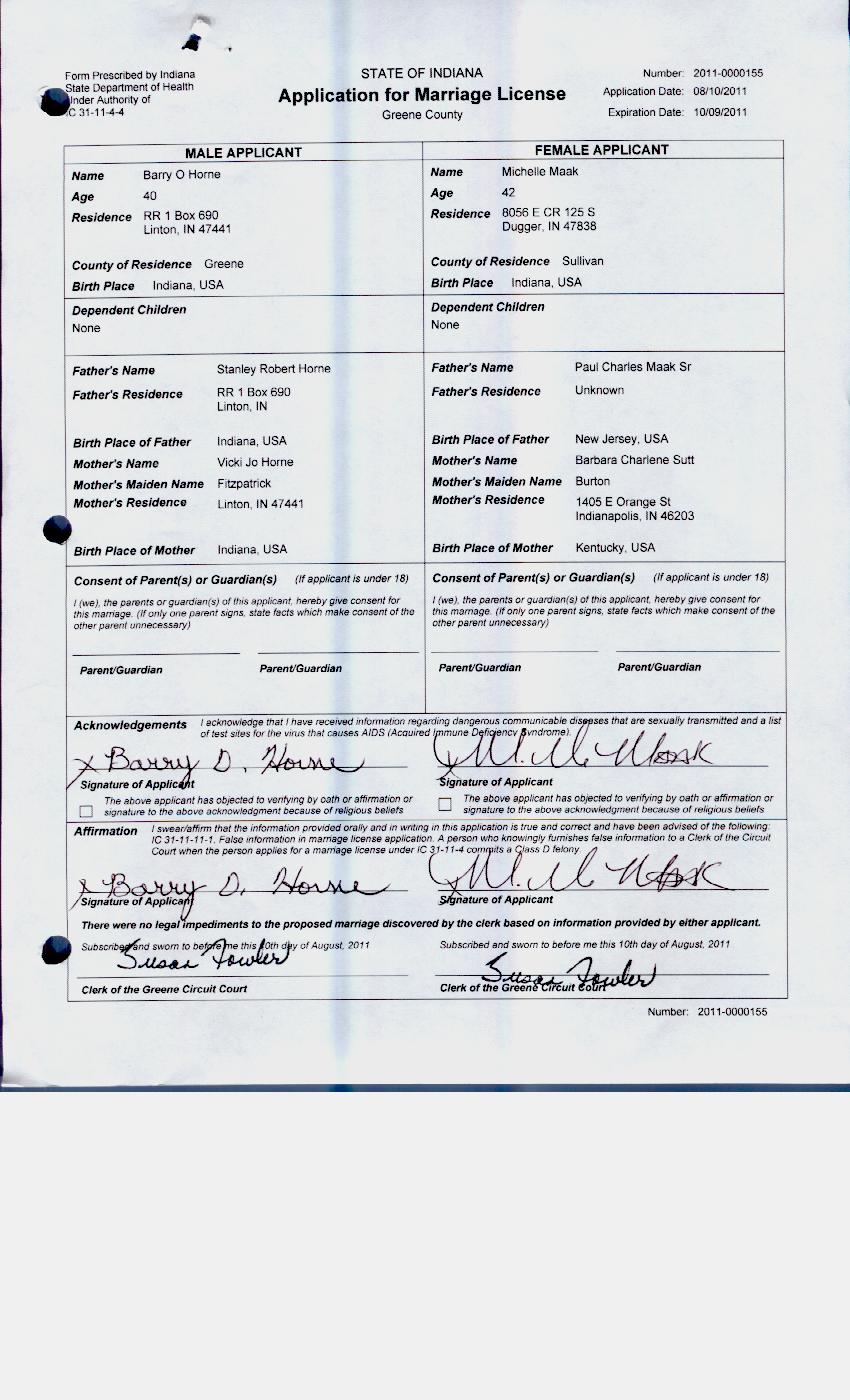 Form Prescribed by Indiana
State Department of Health
Under Authority of
IC 31-11-4-4
STATE OF INDIANA
Application for Marriage License
Greene County
Number: 2011-0000155
Application Date: 08/10/2011
Expiration Date: 10/09/2011
MALE APPLICANT
Name Barry O Horne
Age 40
Residence RR 1 Box 690
Linton, IN 47441
County of Residence Greene
Birth Place Indiana, USA
Dependent Children
None
Father's Name Stanley Robert Horne
Father's Residence RR 1 Box 690
Linton, IN
Birth Place of Father Indiana, USA
Mother's Name Vicki Jo Horne
Mother's Maiden Name Fitzpatrick
Mother's Residence Linton, IN 47441
Birth Place of Mother Indiana, USA
Consent of Parent(s) or Guardian(s) (If applicant is under 18)
I (we), the parents or guardian(s) of this applicant, hereby give consent for
this marriage. (If only one parent signs, state facts which make consent of the
other parent unnecessary)
Parent/Guardian Parent/Guardian
FEMALE APPLICANT
Name Michelle Maak
Age 42
Residence 8056 E CR 125 S
Dugger, IN 47838
County of Residence Sullivan
Birth Place Indiana, USA
Dependent Children
None
Father's Name Paul Charles Maak Sr
Father's Residence Unknown
Birth Place of Father New Jersey, USA
Mother's Name Barbara Charlene Sutt
Mother's Maiden Name Burton
Mother's Residence 1405 E Orange St
Indianapolis, IN 46203
Birth Place of Mother Kentucky, USA
Consent of Parent(s) or Guardian(s) (If applicant is under 18)
I (we), the parents or guardian(s) of this applicant, hereby give consent for
this marriage. (If only one parent signs, state facts which make consent of the
other parent unnecessary)
Parent/Guardian Parent/Guardian
Acknowledgements I acknowledge that I have received information regarding dangerous communicable diseases that are sexually transmitted and a list
of test sites for the virus that causes AIDS (Acquired Immune Deficiency Syndrome).
x Barry D. Horne
Signature of Applicant
The above applicant has objected to verifying by oath or affirmation or
signature to the above acknowledgment because of religious beliefs
x Maak
Signature of Applicant
The above applicant has objected to verifying by oath or affirmation or
signature to the above acknowledgment because of religious beliefs
Affirmation I swear/affirm that the information provided orally and in writing in this application is true and correct and have been advised of the following:
IC 31-11-11-1. False information in marriage license application. A person who knowingly furnishes false information to a Clerk of the Circuit
Court when the person applies for a marriage license under IC 31-11-4 commits a Class D felony.
x Barry D. Horne
Signature of Applicant
x Maak
Signature of Applicant
There were no legal impediments to the proposed marriage discovered by the clerk based on information provided by either applicant.
Subscribed and sworn to before me this 10th day of August, 2011
Susan Fowler
Clerk of the Greene Circuit Court
Subscribed and sworn to before me this 10th day of August, 2011
Susan Fowler
Clerk of the Greene Circuit Court
Number: 2011-0000155